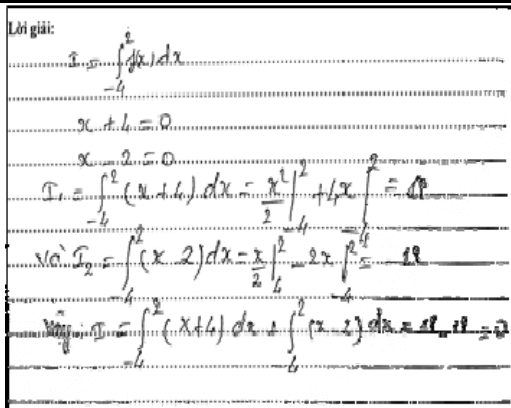 Lời giải:
I = ∫_{-4}^{2} f(x) dx
x + 4 = 0
x - 2 = 0
I₁ = ∫_{-4}^{2} (x+4) dx = x²/2 |_{-4}^{2} + 4x |_{-4}^{2} = 18
và I₂ = ∫_{-4}^{2} (x 2) dx = x/2 |_{4}^{2} - 2x |_{-4}^{2} = -18
Vậy: I = ∫_{-4}^{2} (x+4) dx + ∫_{-4}^{2} (x-2) dx = 18 - 18 = 0